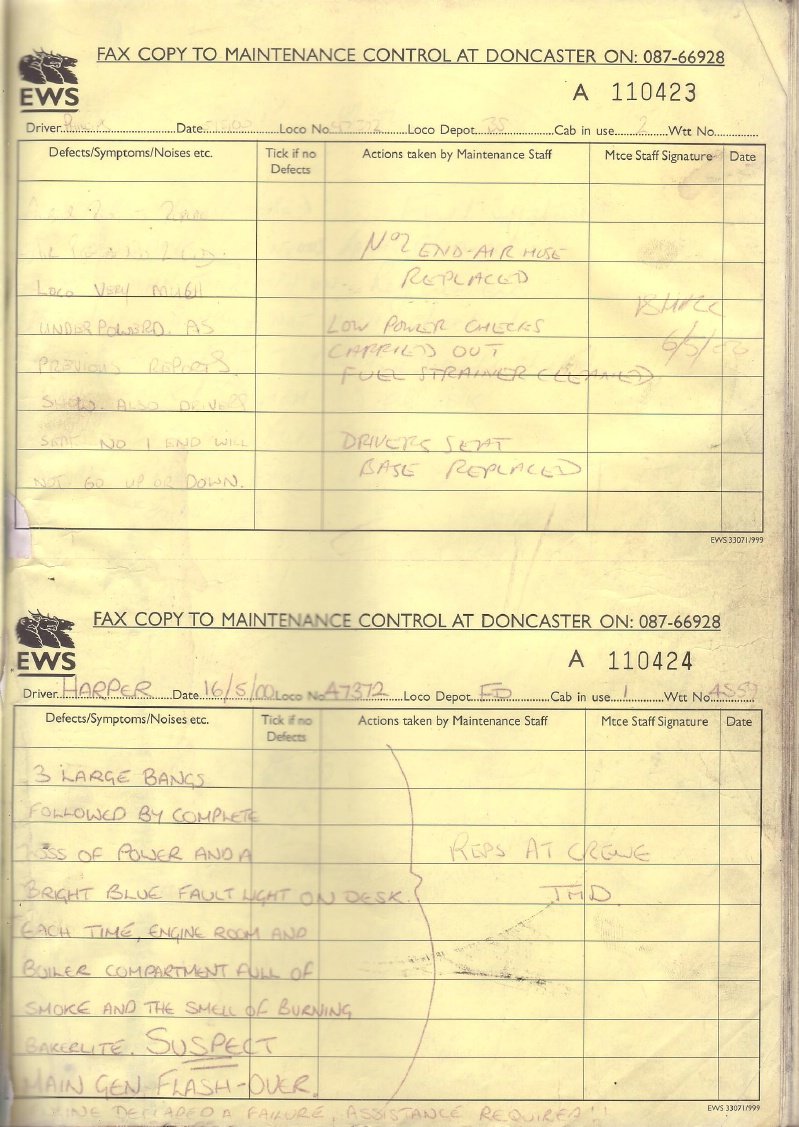 FAX COPY TO MAINTENANCE CONTROL AT DONCASTER ON: 087-66928
EWS
A 110423
Driver Date Loco No 47372 Loco Depot Cab in use 2 Wtt No
Defects/Symptoms/Noises etc. Tick if no Defects Actions taken by Maintenance Staff Mtce Staff Signature Date
No2 END-AIR HOSE
REPLACED
LOCO VERY MUCH
UNDERPOWERD. AS LOW POWER CHECKS
PREVIOUS REPORTS CARRIED OUT 6/5/00
FUEL STRAINER CLEANED
SHOW. ALSO DRIVERS
SEAT NO 1 END WILL DRIVERS SEAT
NOT GO UP OR DOWN. BASE REPLACED
EWS 33071/999
FAX COPY TO MAINTENANCE CONTROL AT DONCASTER ON: 087-66928
EWS
A 110424
Driver HARPER Date 16/5/00 Loco No 47372 Loco Depot Cab in use 1 Wtt No
Defects/Symptoms/Noises etc. Tick if no Defects Actions taken by Maintenance Staff Mtce Staff Signature Date
3 LARGE BANGS
FOLLOWED BY COMPLETE
LOSS OF POWER AND A REPS AT CREWE
BRIGHT BLUE FAULT LIGHT ON DESK. TMD.
EACH TIME, ENGINE ROOM AND
BOILER COMPARTMENT FULL OF
SMOKE AND THE SMELL OF BURNING
BAKERLITE. SUSPECT
MAIN GEN FLASH-OVER.
DECLARED A FAILURE, ASSISTANCE REQUIRED!!
EWS 33071/999